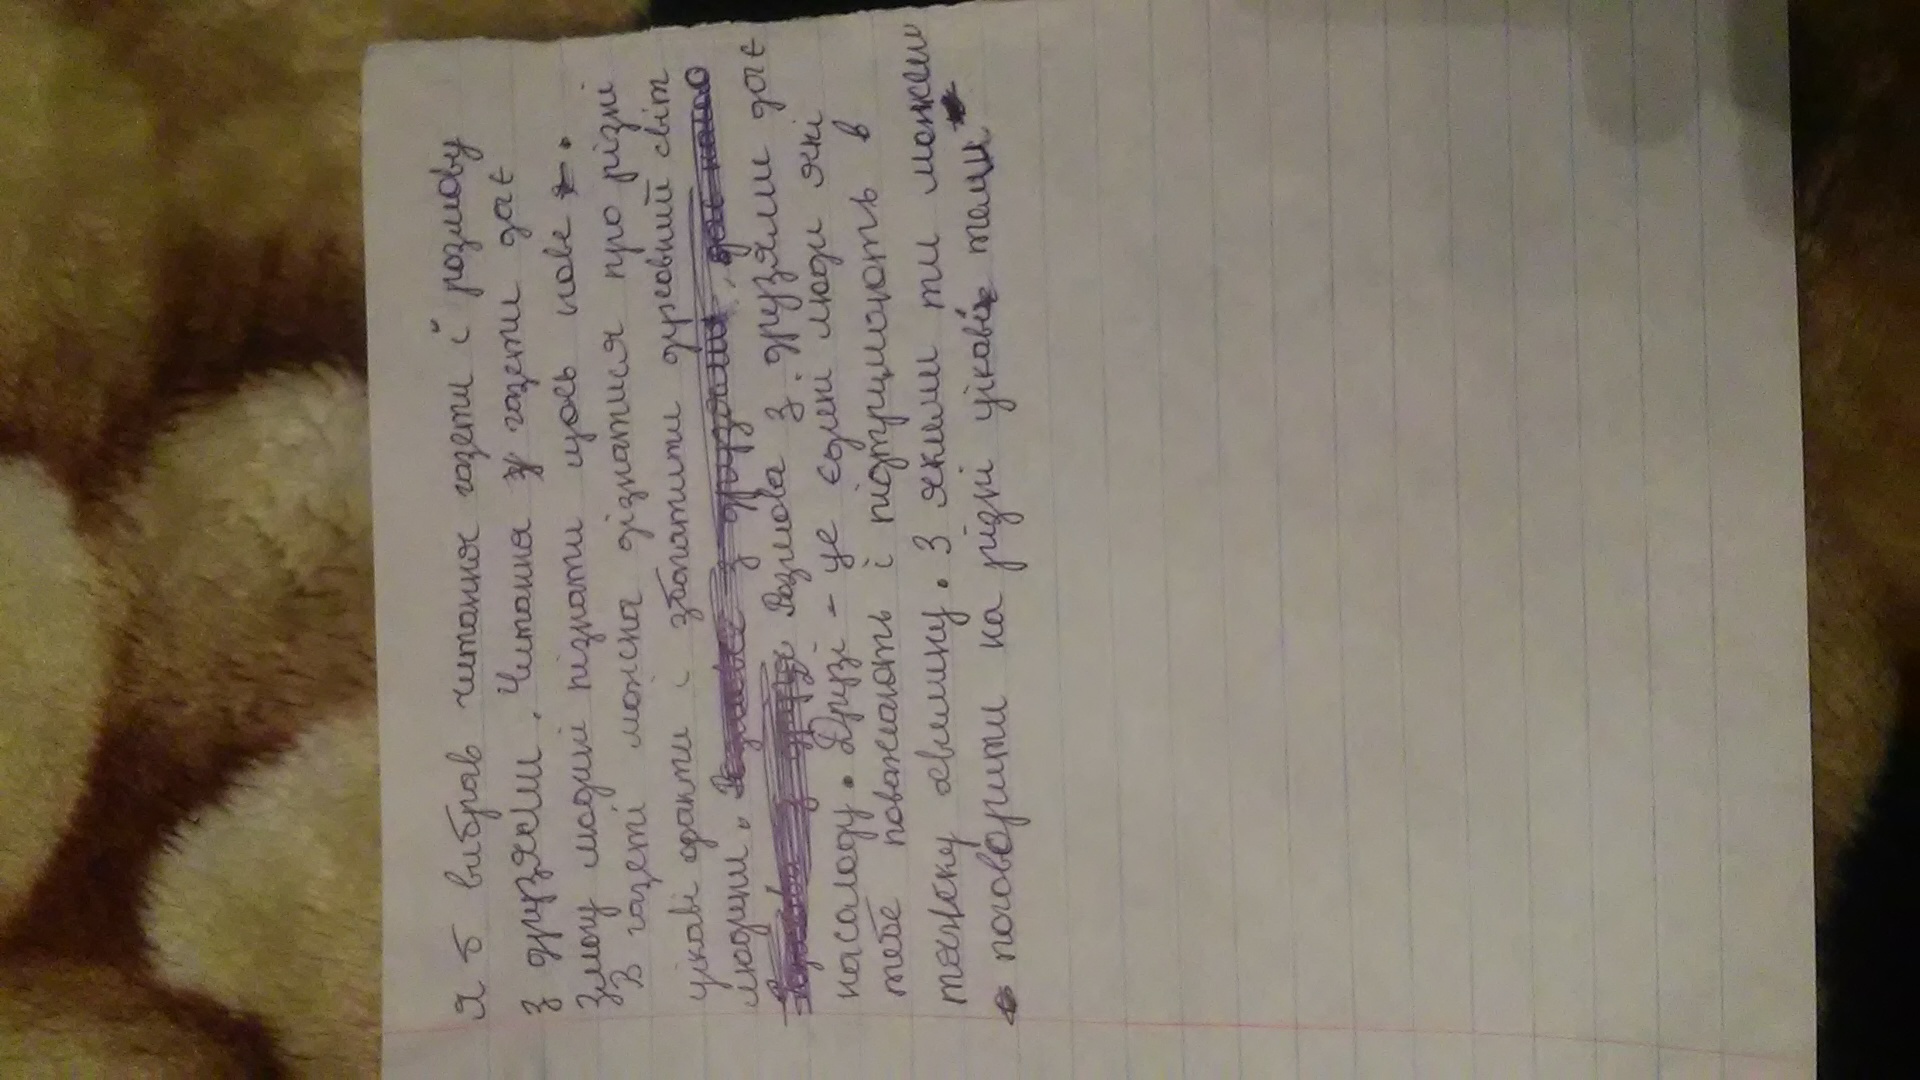 Я б вибрав читання газети і розмову
з друзями. Читання газети дає
змогу людині пізнати щось нове.
В газеті можна дізнатися про різні
цікаві факти і збагатити духовний світ
людини. Розмова з друзями, дає насо
Розмова з друзя Розмова з друзями дає
насолоду. Друзі - це єдині люди які
тебе поважають і підтримають в
тяжку хвилину. З якими ти можеш
поговорити на різні цікаві теми